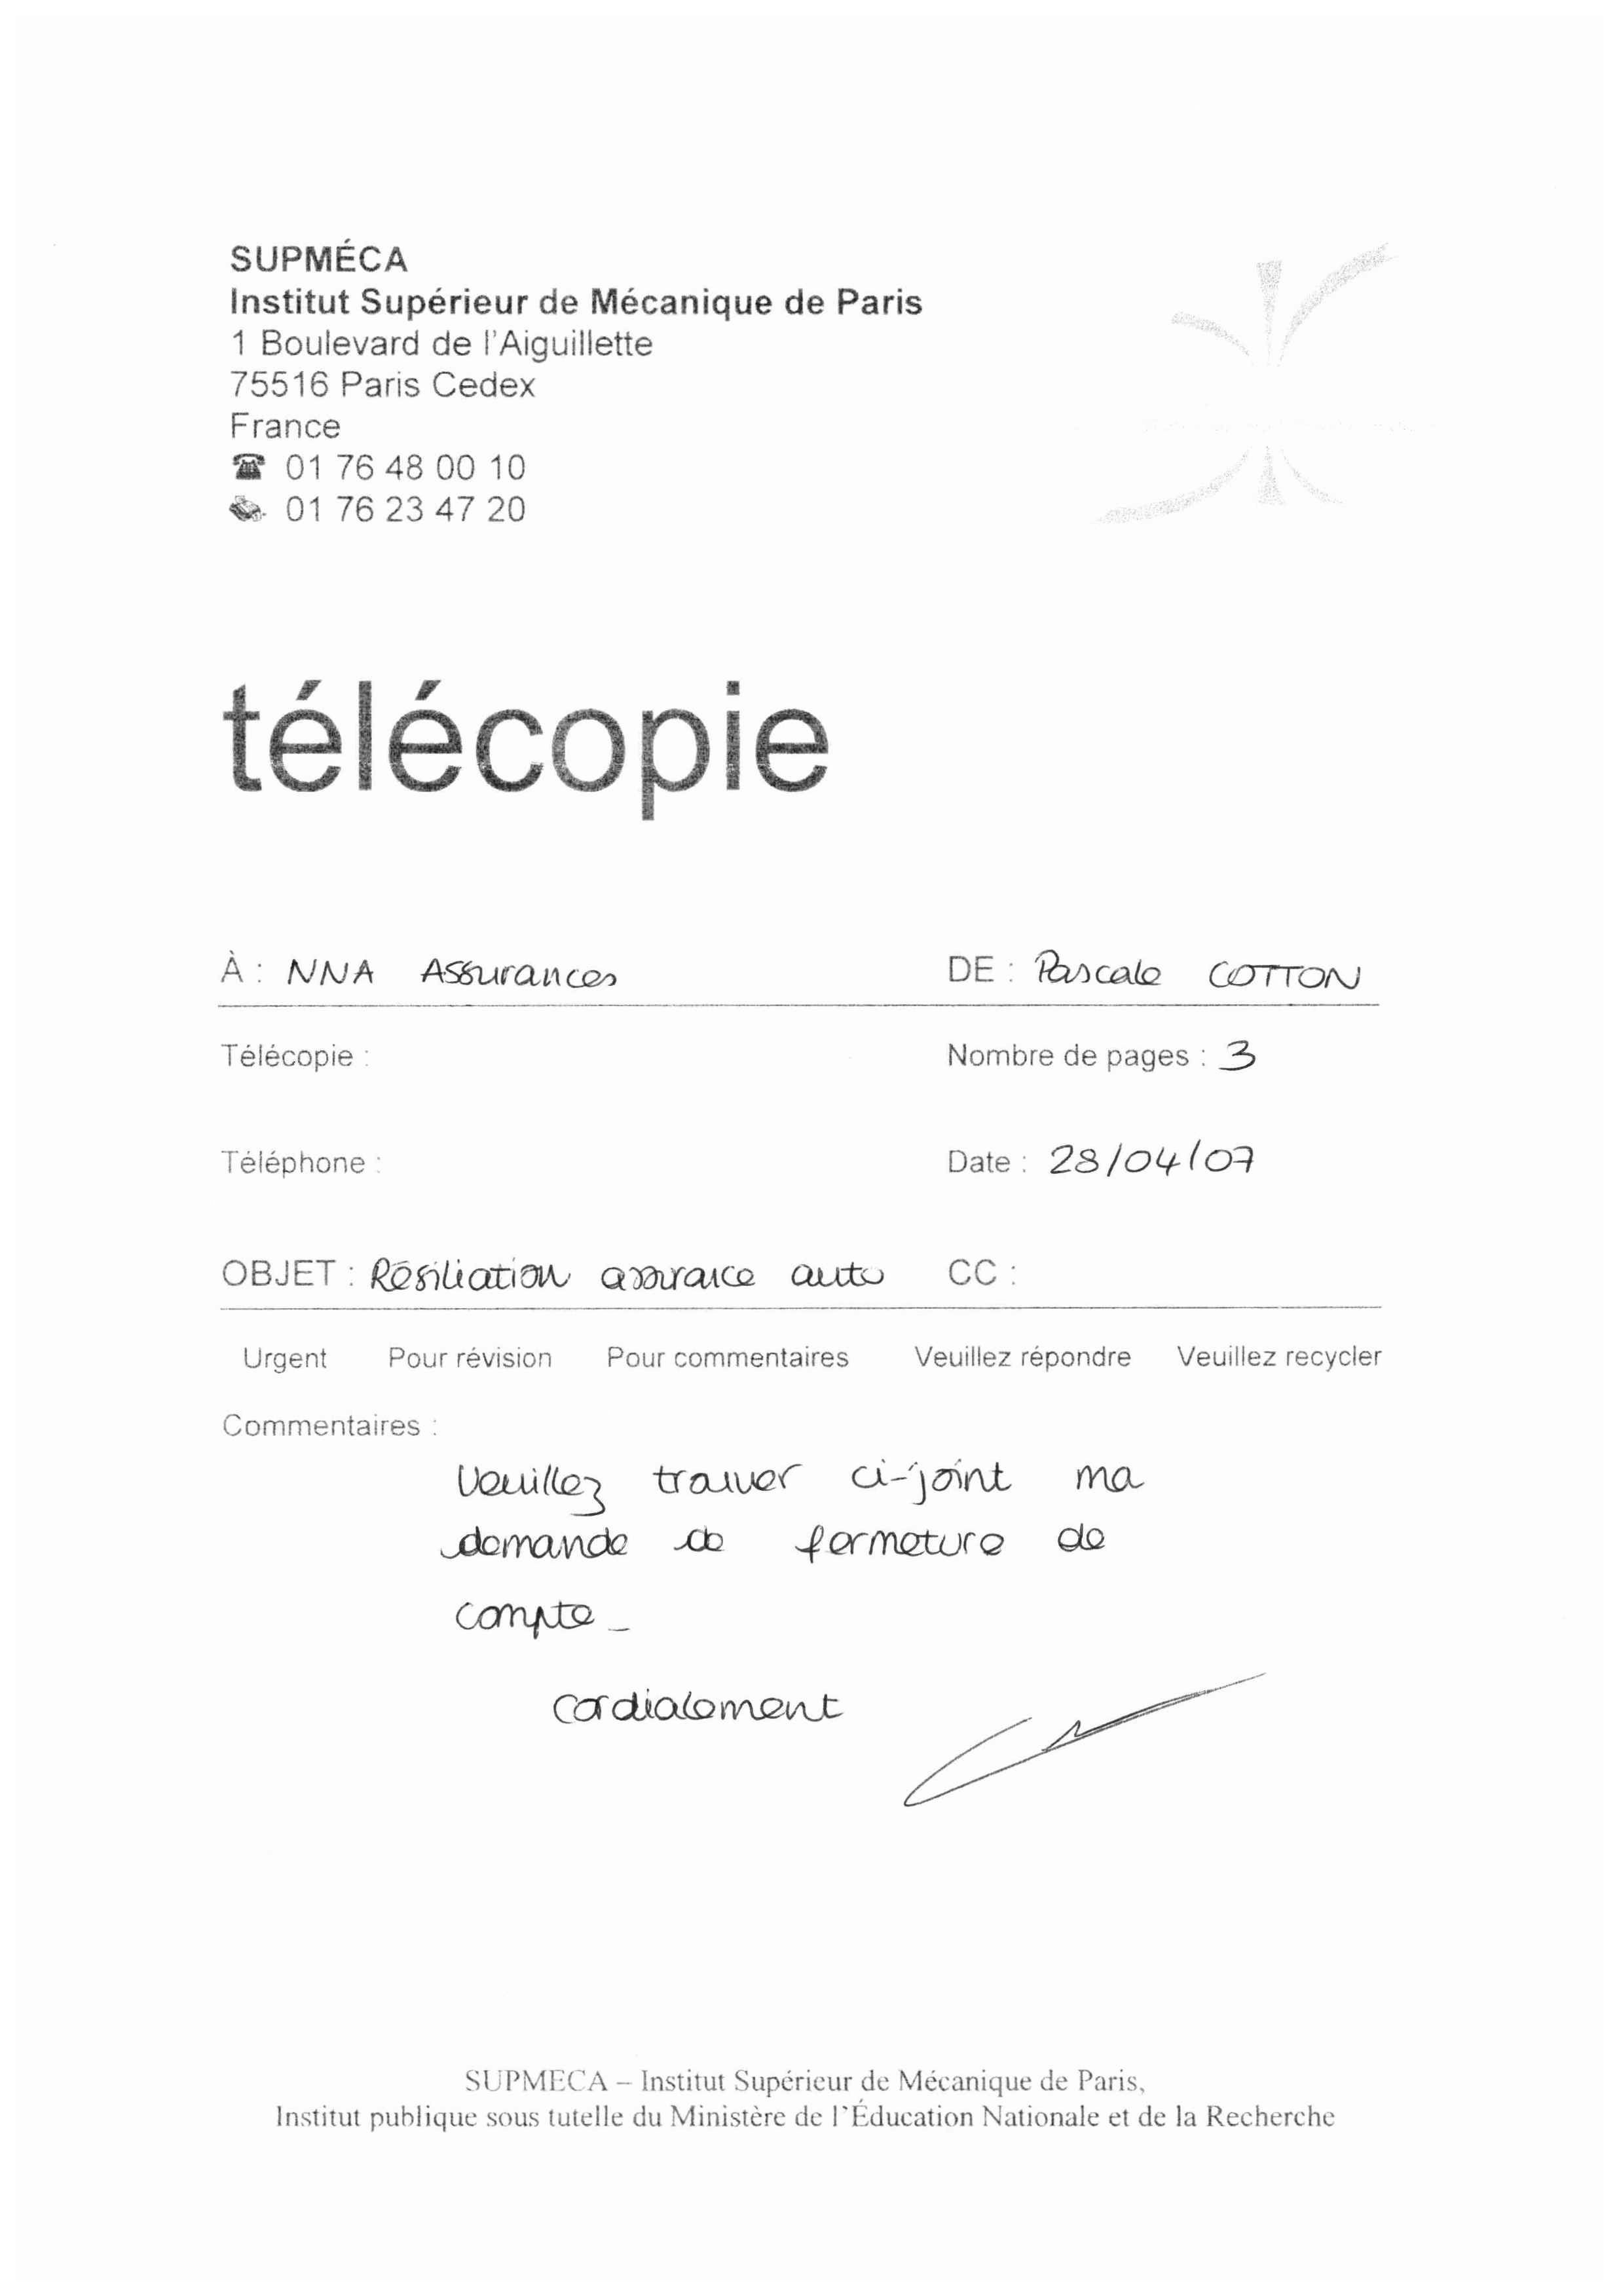 SUPMÉCA
Institut Supérieur de Mécanique de Paris
1 Boulevard de l'Aiguillette
75516 Paris Cedex
France
☎ 01 76 48 00 10
01 76 23 47 20
télécopie
À : NNA Assurances DE : Pascale COTTON
Télécopie : Nombre de pages : 3
Téléphone : Date : 28/04/07
OBJET : Résiliation assurance auto CC :
Urgent Pour révision Pour commentaires Veuillez répondre Veuillez recycler
Commentaires :
Veuillez trouver ci-joint ma
demande de fermeture de
compte_
Cordialement
SUPMECA – Institut Supérieur de Mécanique de Paris,
Institut publique sous tutelle du Ministère de l'Éducation Nationale et de la Recherche